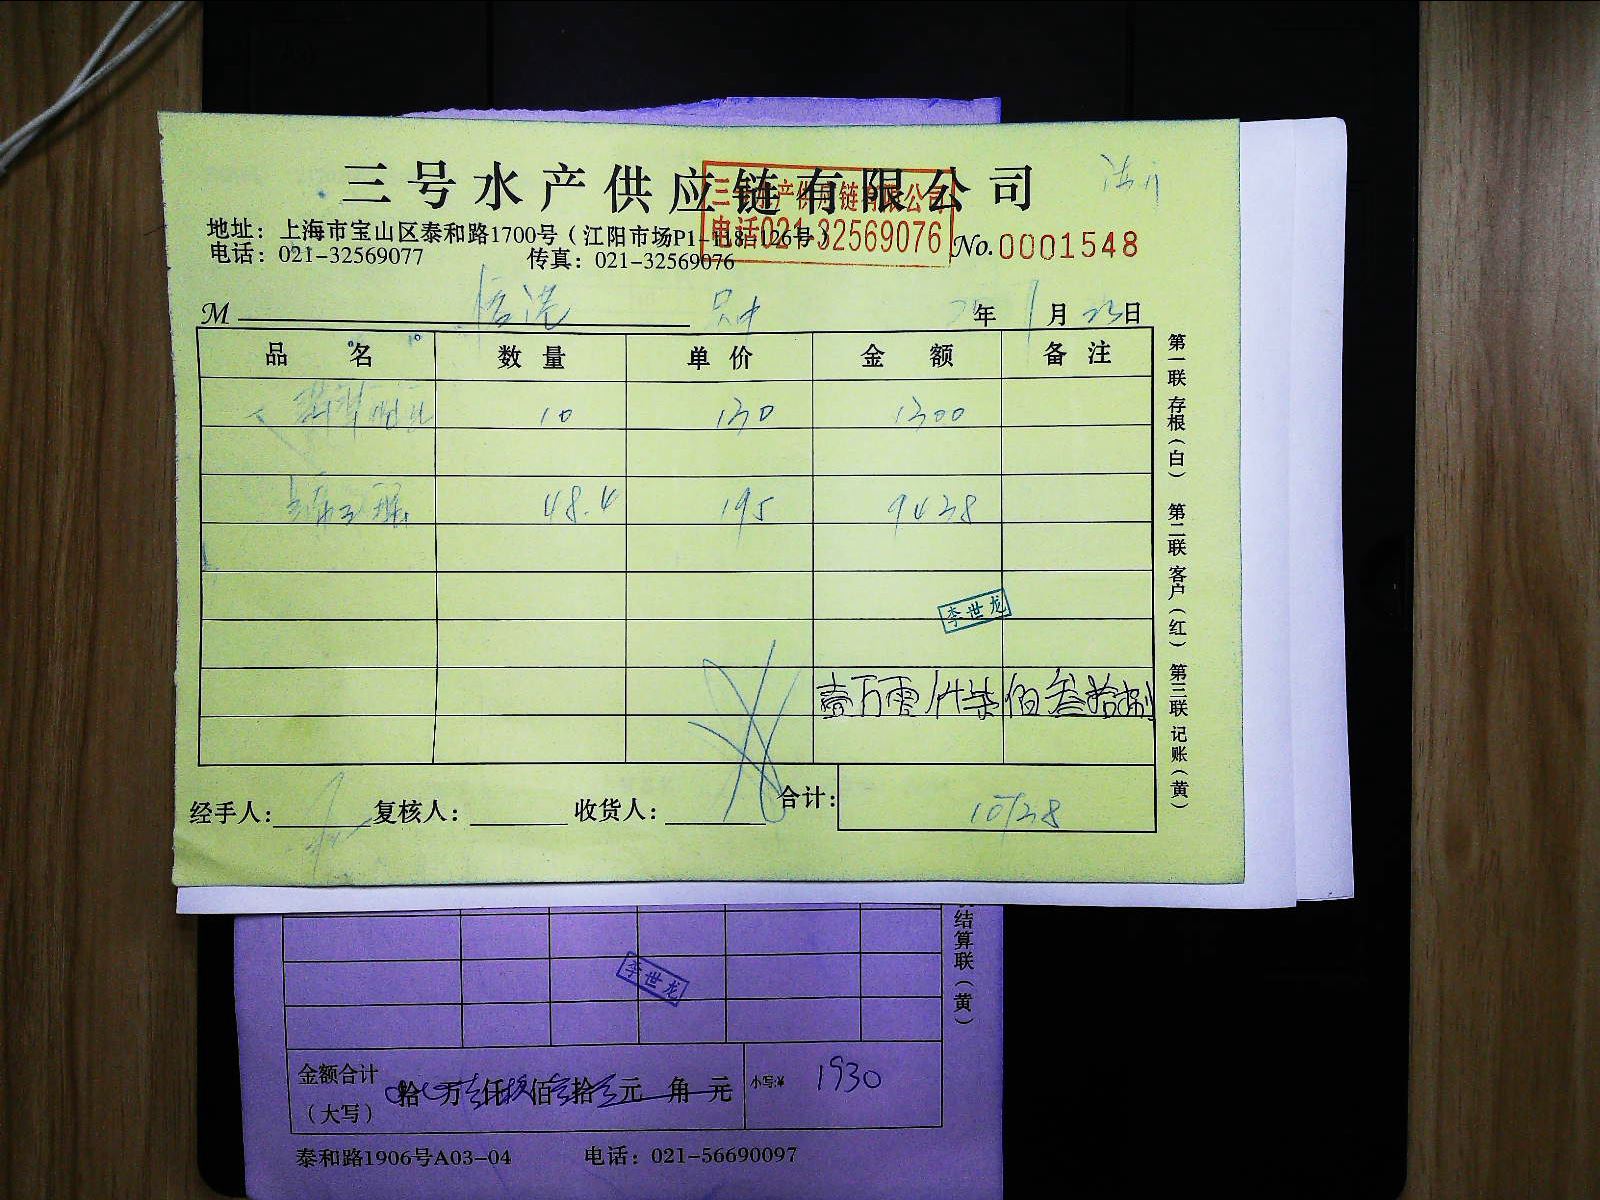 三号水产供应链有限公司
三号水产供应链有限公司
电话021-32569076
地址：上海市宝山区泰和路1700号（江阳市场P1-118-126号）
电话：021-32569077 传真：021-32569076
No.0001548
M 年 1月23日
品名 数量 单价 金额 备注
10 130 1300
48.4 195 9438
李世龙
壹万零仟柒佰叁拾捌
经手人： 复核人： 收货人： 合计： 10738
第一联 存根（白） 第二联 客户（红） 第三联 记账（黄）
结算联（黄）
李世龙
金额合计（大写） 拾 万 仟 佰 拾 元 角 元 小写:¥ 1930
泰和路1906号A03-04 电话：021-56690097